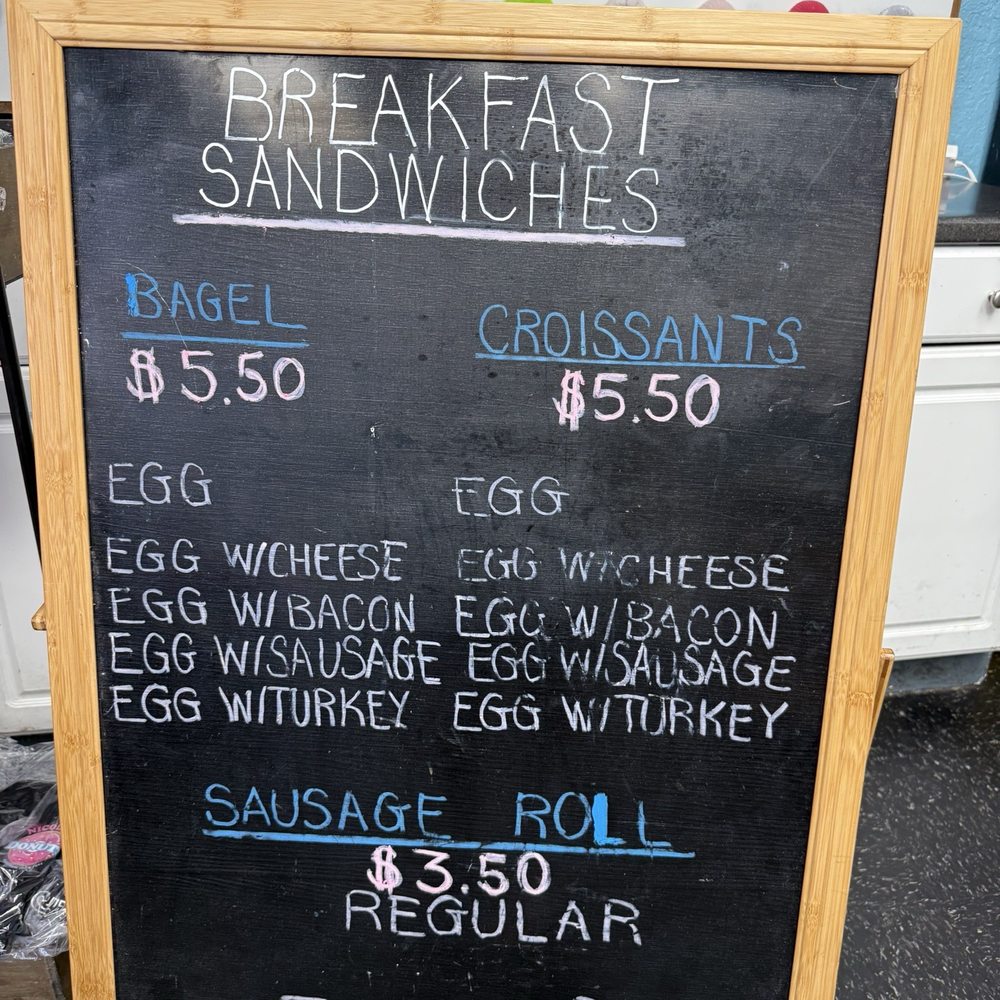 BREAKFAST
SANDWICHES
BAGEL
$5.50
EGG
EGG W/CHEESE
EGG W/BACON
EGG W/SAUSAGE
EGG W/TURKEY
CROISSANTS
$5.50
EGG
EGG W/CHEESE
EGG W/BACON
EGG W/SAUSAGE
EGG W/TURKEY
SAUSAGE ROLL
$3.50
REGULAR